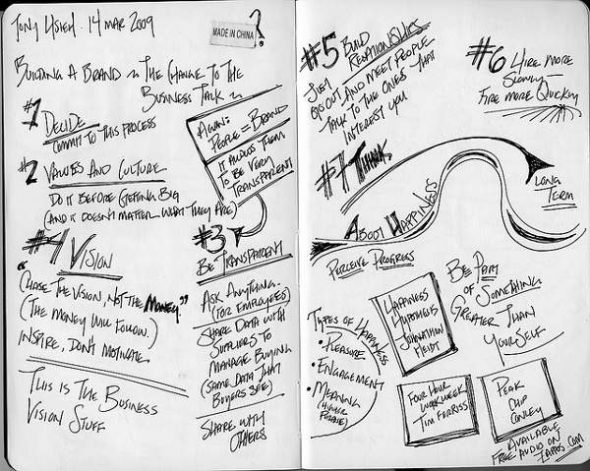 TONY HSIEH · 14 MAR 2009
MADE IN CHINA
?
BUILDING A BRAND ~ THE CHANGE TO THE
BUSINESS TALK ~
#1 DECIDE
COMMIT TO THIS PROCESS
#2 VALUES AND CULTURE
DO IT BEFORE GETTING BIG
(AND IT DOESN'T MATTER WHAT THEY ARE)
AGAIN:
PEOPLE = BRAND
IT ALLOWS THEM
TO BE VERY
TRANSPARENT
#3
BE TRANSPARENT
ASK ANYTHING.
(FOR EMPLOYEES)
SHARE DATA WITH
SUPPLIERS TO
MANAGE BUYING
(SAME DATA THAT
BUYERS SEE)
SHARE WITH
OTHERS
#4 VISION
"CHASE THE VISION, NOT THE MONEY"
(THE MONEY WILL FOLLOW.)
INSPIRE, DON'T MOTIVATE.
THIS IS THE BUSINESS
VISION STUFF
#5 BUILD
RELATIONSHIPS
JUST
GO OUT AND MEET PEOPLE
TALK TO THE ONES THAT
INTEREST YOU
#6 HIRE MORE
SLOWLY —
FIRE MORE QUICKLY
#7 THINK
LONG
TERM
ABOUT HAPPINESS
PERCEIVE PROGRESS
TYPES OF HAPPINESS
• PLEASURE
• ENGAGEMENT
• MEANING
(HIGHER
PEOPLE)
HAPPINESS
HYPOTHESIS
JOHNATHON
HEIDT
BE PART
OF SOMETHING
GREATER THAN
YOURSELF
FOUR HOUR
WORKWEEK
TIM FERRISS
PEAK
CHIP
CONLEY
AVAILABLE
FREE AUDIO ON ZAPPOS.COM